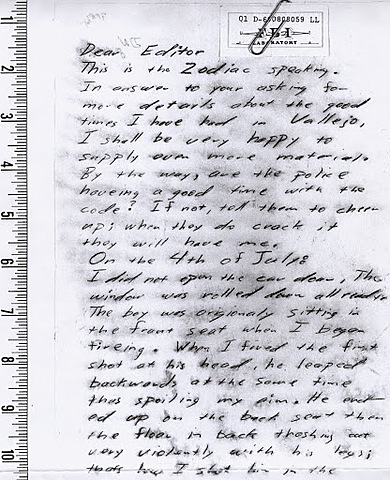 Q1 D-660808059 LL
FBI
LABORATORY
Dear Editor
This is the Zodiac speaking.
In answer to your asking for
more details about the good
times I have had in Vallejo,
I shall be very happy to
supply even more material.
By the way, are the police
haveing a good time with the
code? If not, tell them to cheer
up; when they do crack it
they will have me.
On the 4th of July:
I did not open the car door, The
window was rolled down all ready.
The boy was origionaly sitting in
the front seat when I began
fireing. When I fired the first
shot at his head, he leaped
backwards at the same time
thus spoiling my aim. He end-
ed up on the back seat then
the floor in back thashing out
very violently with his legs;
thats how I shot him in the
2
3
4
5
6
7
8
9
10